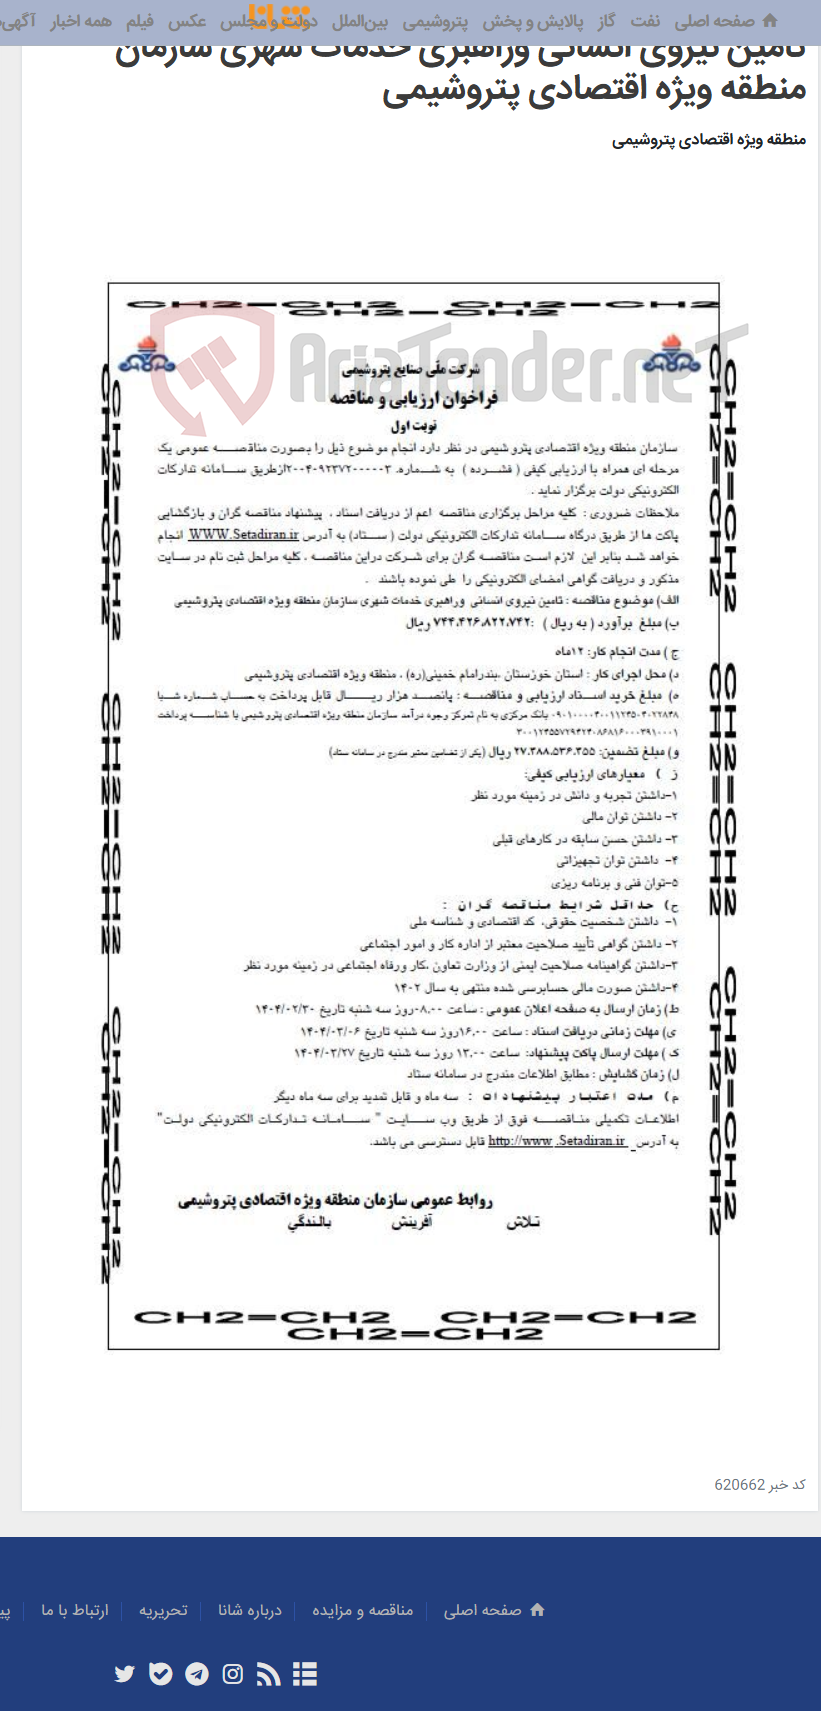 صفحه اصلی نفت گاز پالایش و پخش پتروشیمی بین‌الملل دولت و مجلس عکس فیلم همه اخبار آگهی‌
شانا
تامین نیروی انسانی وراهبری خدمات شهری سازمان
منطقه ویژه اقتصادی پتروشیمی
منطقه ویژه اقتصادی پتروشیمی
CH2=CH2 CH2=CH2
CH2=CH2
AriaTender.neT
شرکت ملی صنایع پتروشیمی
فراخوان ارزیابی و مناقصه
نوبت اول
سازمان منطقه ویژه اقتصادی پتروشیمی در نظر دارد انجام موضوع ذیل را بصورت مناقصه عمومی یک
مرحله ای همراه با ارزیابی کیفی ( فشرده ) به شماره، ۲۰۰۴۰۹۲۳۷۲۰۰۰۰۰۳ ازطریق سامانه تدارکات
الکترونیکی دولت برگزار نماید .
ملاحظات ضروری : کلیه مراحل برگزاری مناقصه اعم از دریافت اسناد ، پیشنهاد مناقصه گران و بازگشایی
پاکت ها از طریق درگاه سامانه تدارکات الکترونیکی دولت ( ستاد) به آدرس WWW.Setadiran.ir انجام
خواهد شد بنابر این لازم است مناقصه گران برای شرکت دراین مناقصه ، کلیه مراحل ثبت نام در سایت
مذکور و دریافت گواهی امضای الکترونیکی را طی نموده باشند .
الف) موضوع مناقصه : تامین نیروی انسانی وراهبری خدمات شهری سازمان منطقه ویژه اقتصادی پتروشیمی
ب) مبلغ برآورد ( به ریال ) :۷۴۴،۴۲۶،۸۲۲،۷۴۲ ریال
ج ) مدت انجام کار: ۱۲ماه
د) محل اجرای کار : استان خوزستان ،بندرامام خمینی(ره) ، منطقه ویژه اقتصادی پتروشیمی
ه) مبلغ خرید اسناد ارزیابی و مناقصه : پانصد هزار ریال قابل پرداخت به حساب شماره شبا
بانک مرکزی به نام تمرکز وجوه درآمد سازمان منطقه ویژه اقتصادی پتروشیمی با شناسه پرداخت
و) مبلغ تضمین: ۲۷،۳۸۸،۵۳۶،۴۵۵ ریال (یکی از تضامین معتبر مندرج در سامانه ستاد)
ز ) معیارهای ارزیابی کیفی:
۱-داشتن تجربه و دانش در زمینه مورد نظر
۲- داشتن توان مالی
۳- داشتن حسن سابقه در کارهای قبلی
۴- داشتن توان تجهیزاتی
۵-توان فنی و برنامه ریزی
ح) حداقل شرایط مناقصه گران :
۱- داشتن شخصیت حقوقی، کد اقتصادی و شناسه ملی
۲- داشتن گواهی تأیید صلاحیت معتبر از اداره کار و امور اجتماعی
۳-داشتن گواهینامه صلاحیت ایمنی از وزارت تعاون ،کار ورفاه اجتماعی در زمینه مورد نظر
۴-داشتن صورت مالی حسابرسی شده منتهی به سال ۱۴۰۲
ط) زمان ارسال به صفحه اعلان عمومی : ساعت ۰۸،۰۰روز سه شنبه تاریخ ۱۴۰۴/۰۲/۳۰
ی) مهلت زمانی دریافت اسناد : ساعت ۱۶،۰۰روز سه شنبه تاریخ ۱۴۰۴/۰۳/۰۶
ک ) مهلت ارسال پاکت پیشنهاد: ساعت ۱۳،۰۰ روز سه شنبه تاریخ ۱۴۰۴/۰۳/۲۷
ل) زمان گشایش : مطابق اطلاعات مندرج در سامانه ستاد
م) مدت اعتبار پیشنهادات : سه ماه و قابل تمدید برای سه ماه دیگر
اطلاعات تکمیلی مناقصه فوق از طریق وب سایت " سامانه تدارکات الکترونیکی دولت"
به آدرس http://www .Setadiran.ir قابل دسترسی می باشد.
روابط عمومی سازمان منطقه ویژه اقتصادی پتروشیمی
تلاش آفرینش بالندگی
CH2=CH2 CH2=CH2
CH2=CH2
کد خبر 620662
صفحه اصلی مناقصه و مزایده درباره شانا تحریریه ارتباط با ما